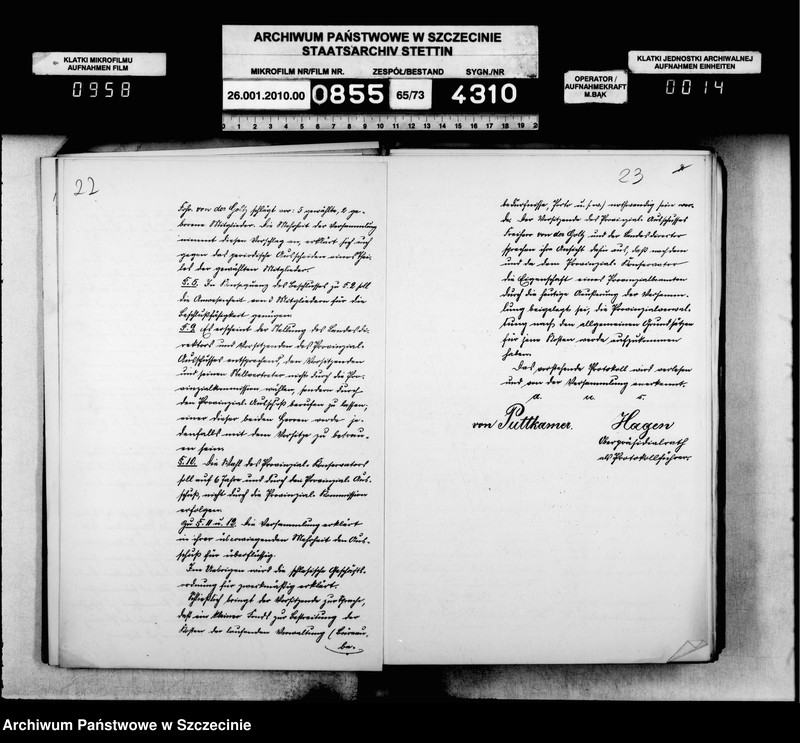 ARCHIWUM PAŃSTWOWE W SZCZECINIE
STAATSARCHIV STETTIN
KLATKI MIKROFILMU
AUFNAHMEN FILM
0958
MIKROFILM NR/FILM NR. ZESPÓŁ/BESTAND SYGN./NR
26.001.2010.00 0855 65/73 4310
0 1 2 3 4 5 6 7 8 9 10 11 12 13 14 15 16 17 18 19 2
OPERATOR /
AUFNAHMEKRAFT
M.BĄK
KLATKI JEDNOSTKI ARCHIWALNEJ
AUFNAHMEN EINHEITEN
0014
22
Frhr. von der Goltz schlägt vor: 5 gewählte, 2 ge-
borene Mitglieder. Die Mehrheit der Versammlung
nimmt diesen Vorschlag an, erklärt sich auch
gegen das periodische Ausscheiden eines Thei-
les der gewählten Mitglieder.
§.5. In Konsequenz des Beschlusses zu §.2 soll
die Anwesenheit von 3 Mitgliedern für die
Beschlußfähigkeit genügen.
§.9. Es erscheint der Stellung des Landesdi-
rektors und Vorsitzenden des Provinzial-
Ausschusses entsprechend, den Vorsitzenden
und seinen Stellvertreter nicht durch die Pro-
vinzialkommission wählen, sondern durch
den Provinzial-Ausschuß berufen zu lassen,
einer dieser beiden Herren werde je-
denfalls mit dem Vorsitze zu betrau-
en sein.
§.10. Die Wahl des Provinzial-Konservators
soll auf 6 Jahre und durch den Provinzial-Aus-
schuß, nicht durch die Provinzial-Kommission
erfolgen.
Zu §.11 u. 12. Die Versammlung erklärt
in ihrer überwiegenden Mehrheit den Aus-
schuß für überflüssig.
Im Uebrigen wird die schlesische Geschäfts-
ordnung für zweckmäßig erklärt.
Schließlich bringt der Vorsitzende zur Sprache,
daß ein kleiner Fonds zur Bestreitung der
Kosten der laufenden Verwaltung (Bureau-
be-
23
bedürfnisse, Porto u.s.w.) nothwendig sein wer-
de. Der Vorsitzende des Provinzial-Ausschusses
Freiherr von der Goltz und der Landesdirector
sprechen ihre Ansicht dahin aus, daß nachdem
und da dem Provinzial-Konservator
die Eigenschaft eines Provinzialbeamten
durch die heutige Aeußerung der Versamm-
lung beigelegt sei, die Provinzialverwal-
tung nach den allgemeinen Grundsätzen
für jene Kosten werde aufzukommen
haben.
Das vorstehende Protokoll wird verlesen
und von der Versammlung anerkannt.
a. u. s.
von Puttkamer. Hagen
Oberpräsidialrath
als Protokollführer.
Archiwum Państwowe w Szczecinie